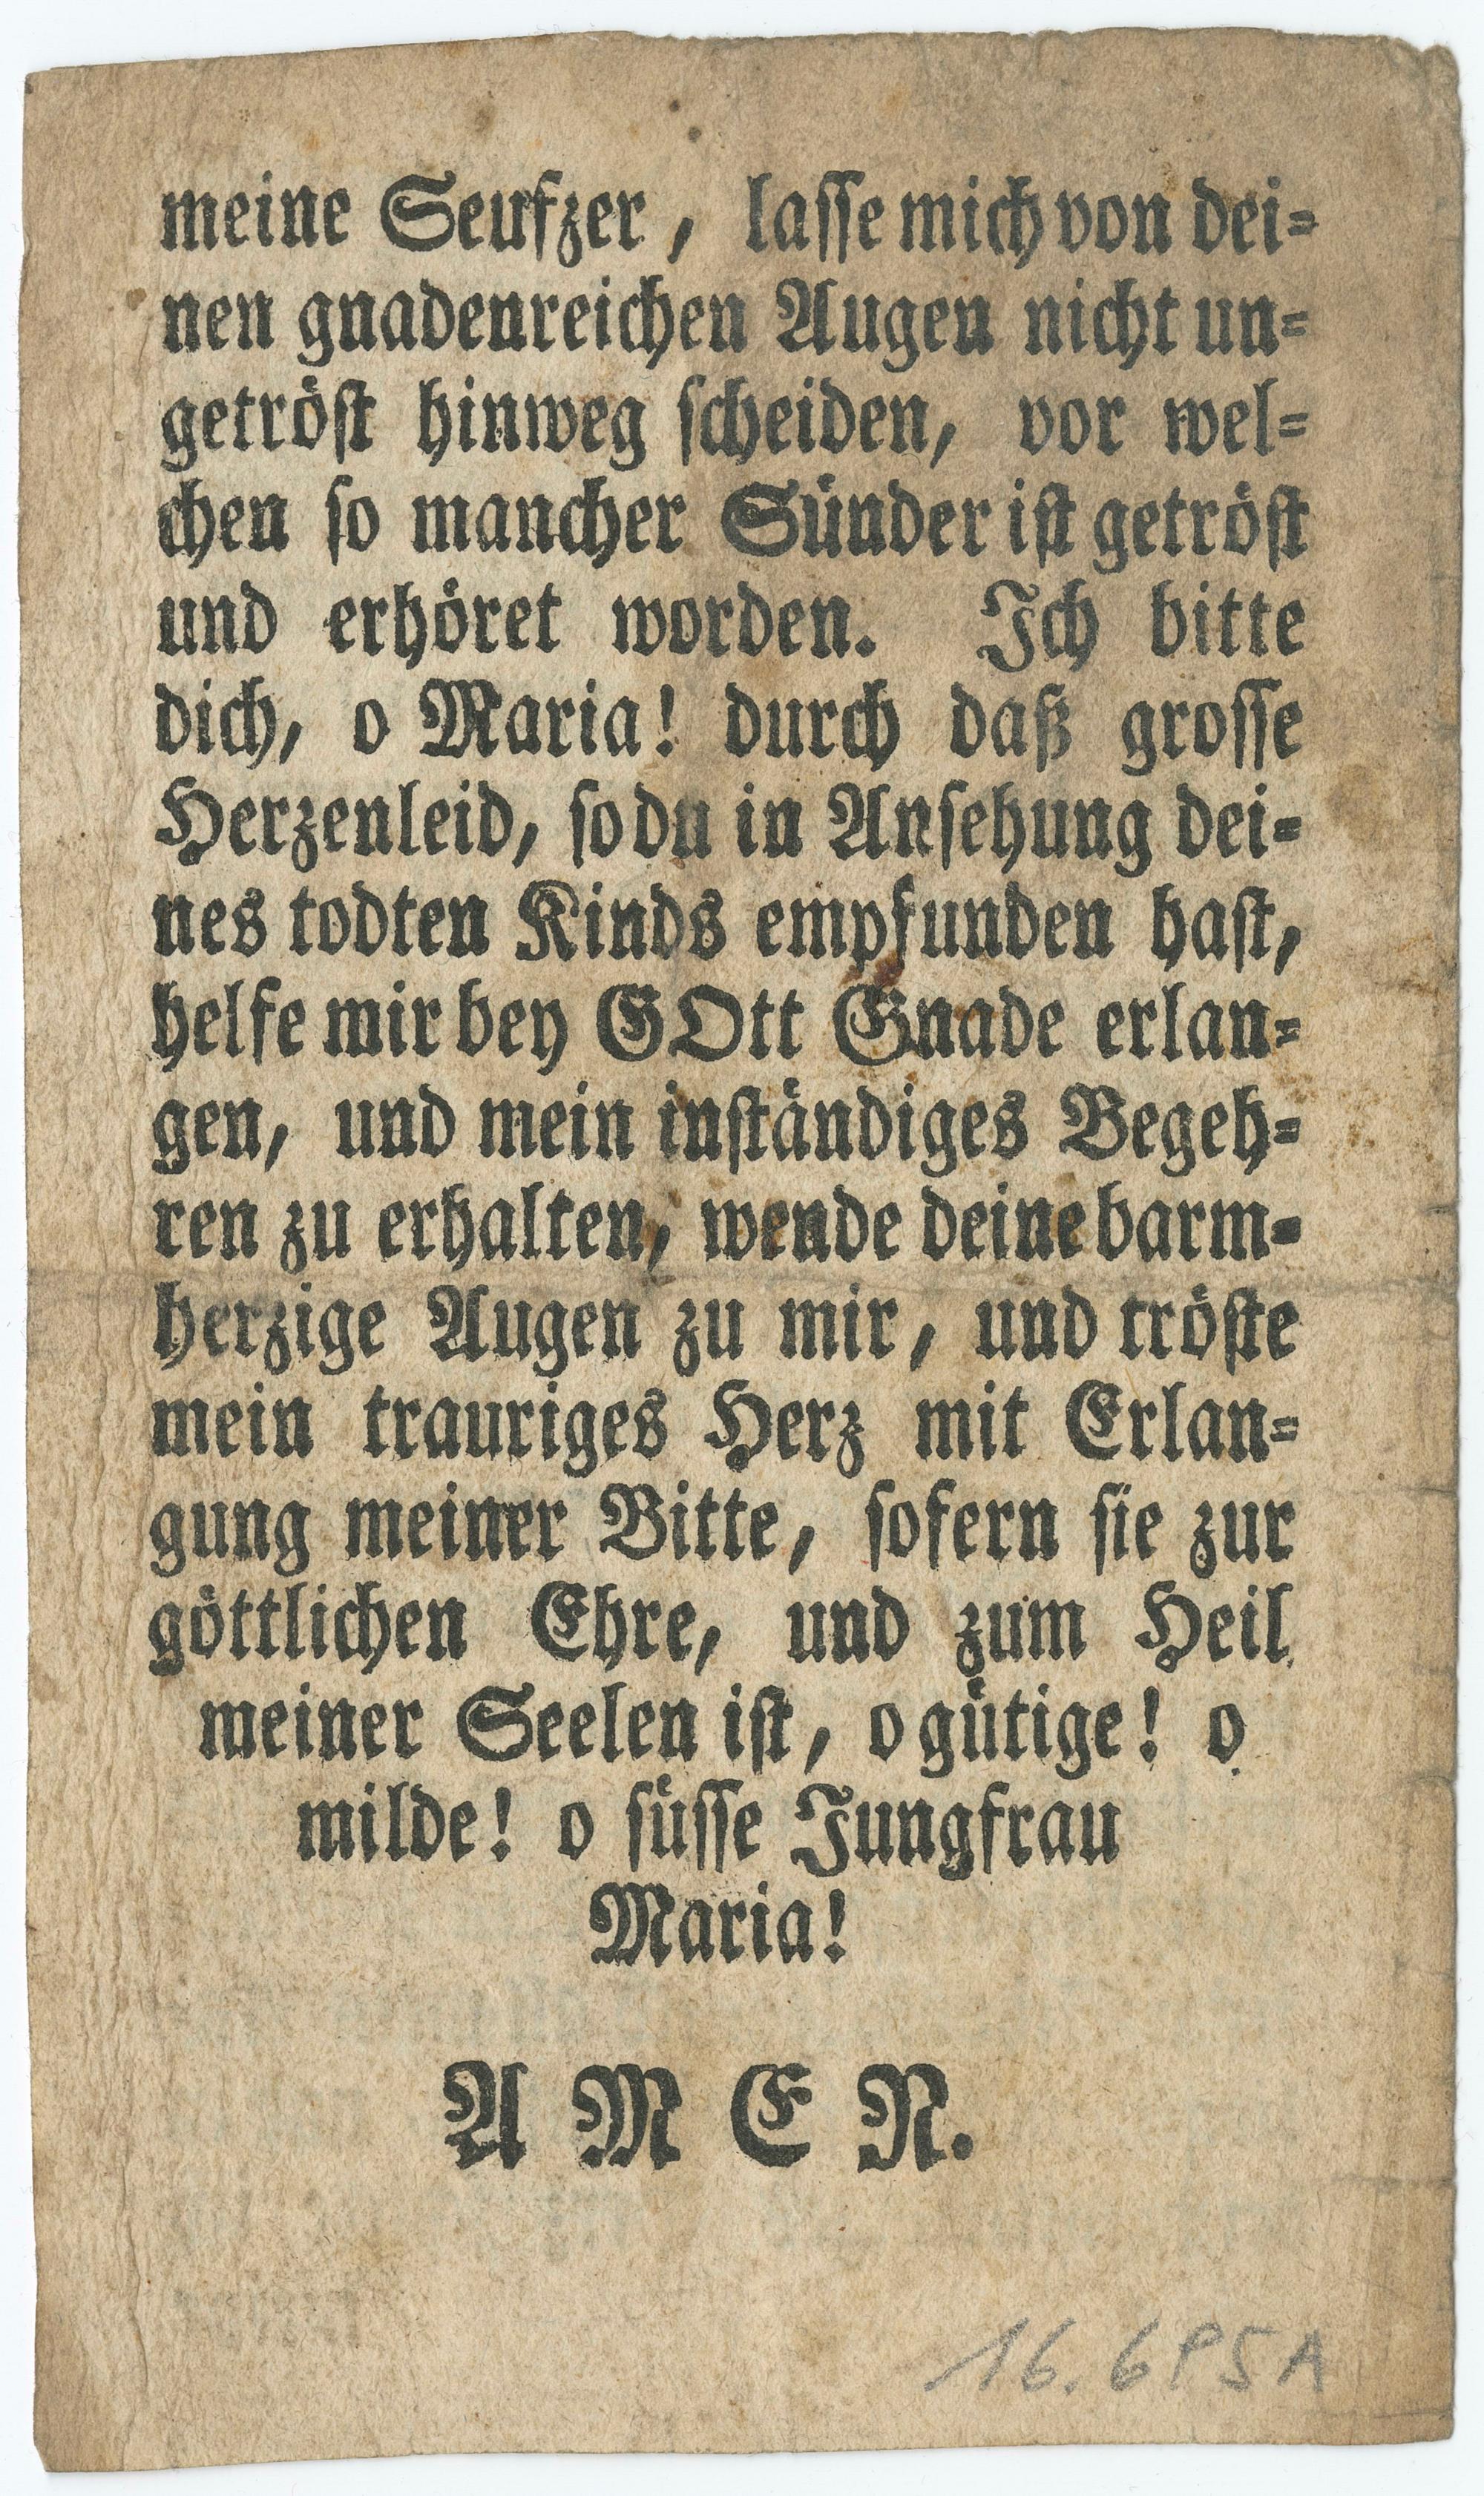 meine Seufzer, lasse mich von dei=
nen gnadenreichen Augen nicht un=
getröst hinweg scheiden, vor wel=
chen so mancher Sünder ist getröst
und erhöret worden. Ich bitte
dich, o Maria! durch daß grosse
Herzenleid, so du in Ansehung dei=
nes todten Kinds empfunden hast,
helfe mir bey GOtt Gnade erlan=
gen, und mein inständiges Begeh=
ren zu erhalten, wende deine barm=
herzige Augen zu mir, und tröste
mein trauriges Herz mit Erlan=
gung meiner Bitte, sofern sie zur
göttlichen Ehre, und zum Heil
meiner Seelen ist, o gütige! o
milde! o süsse Jungfrau
Maria!
A M E N.
16.6P5A